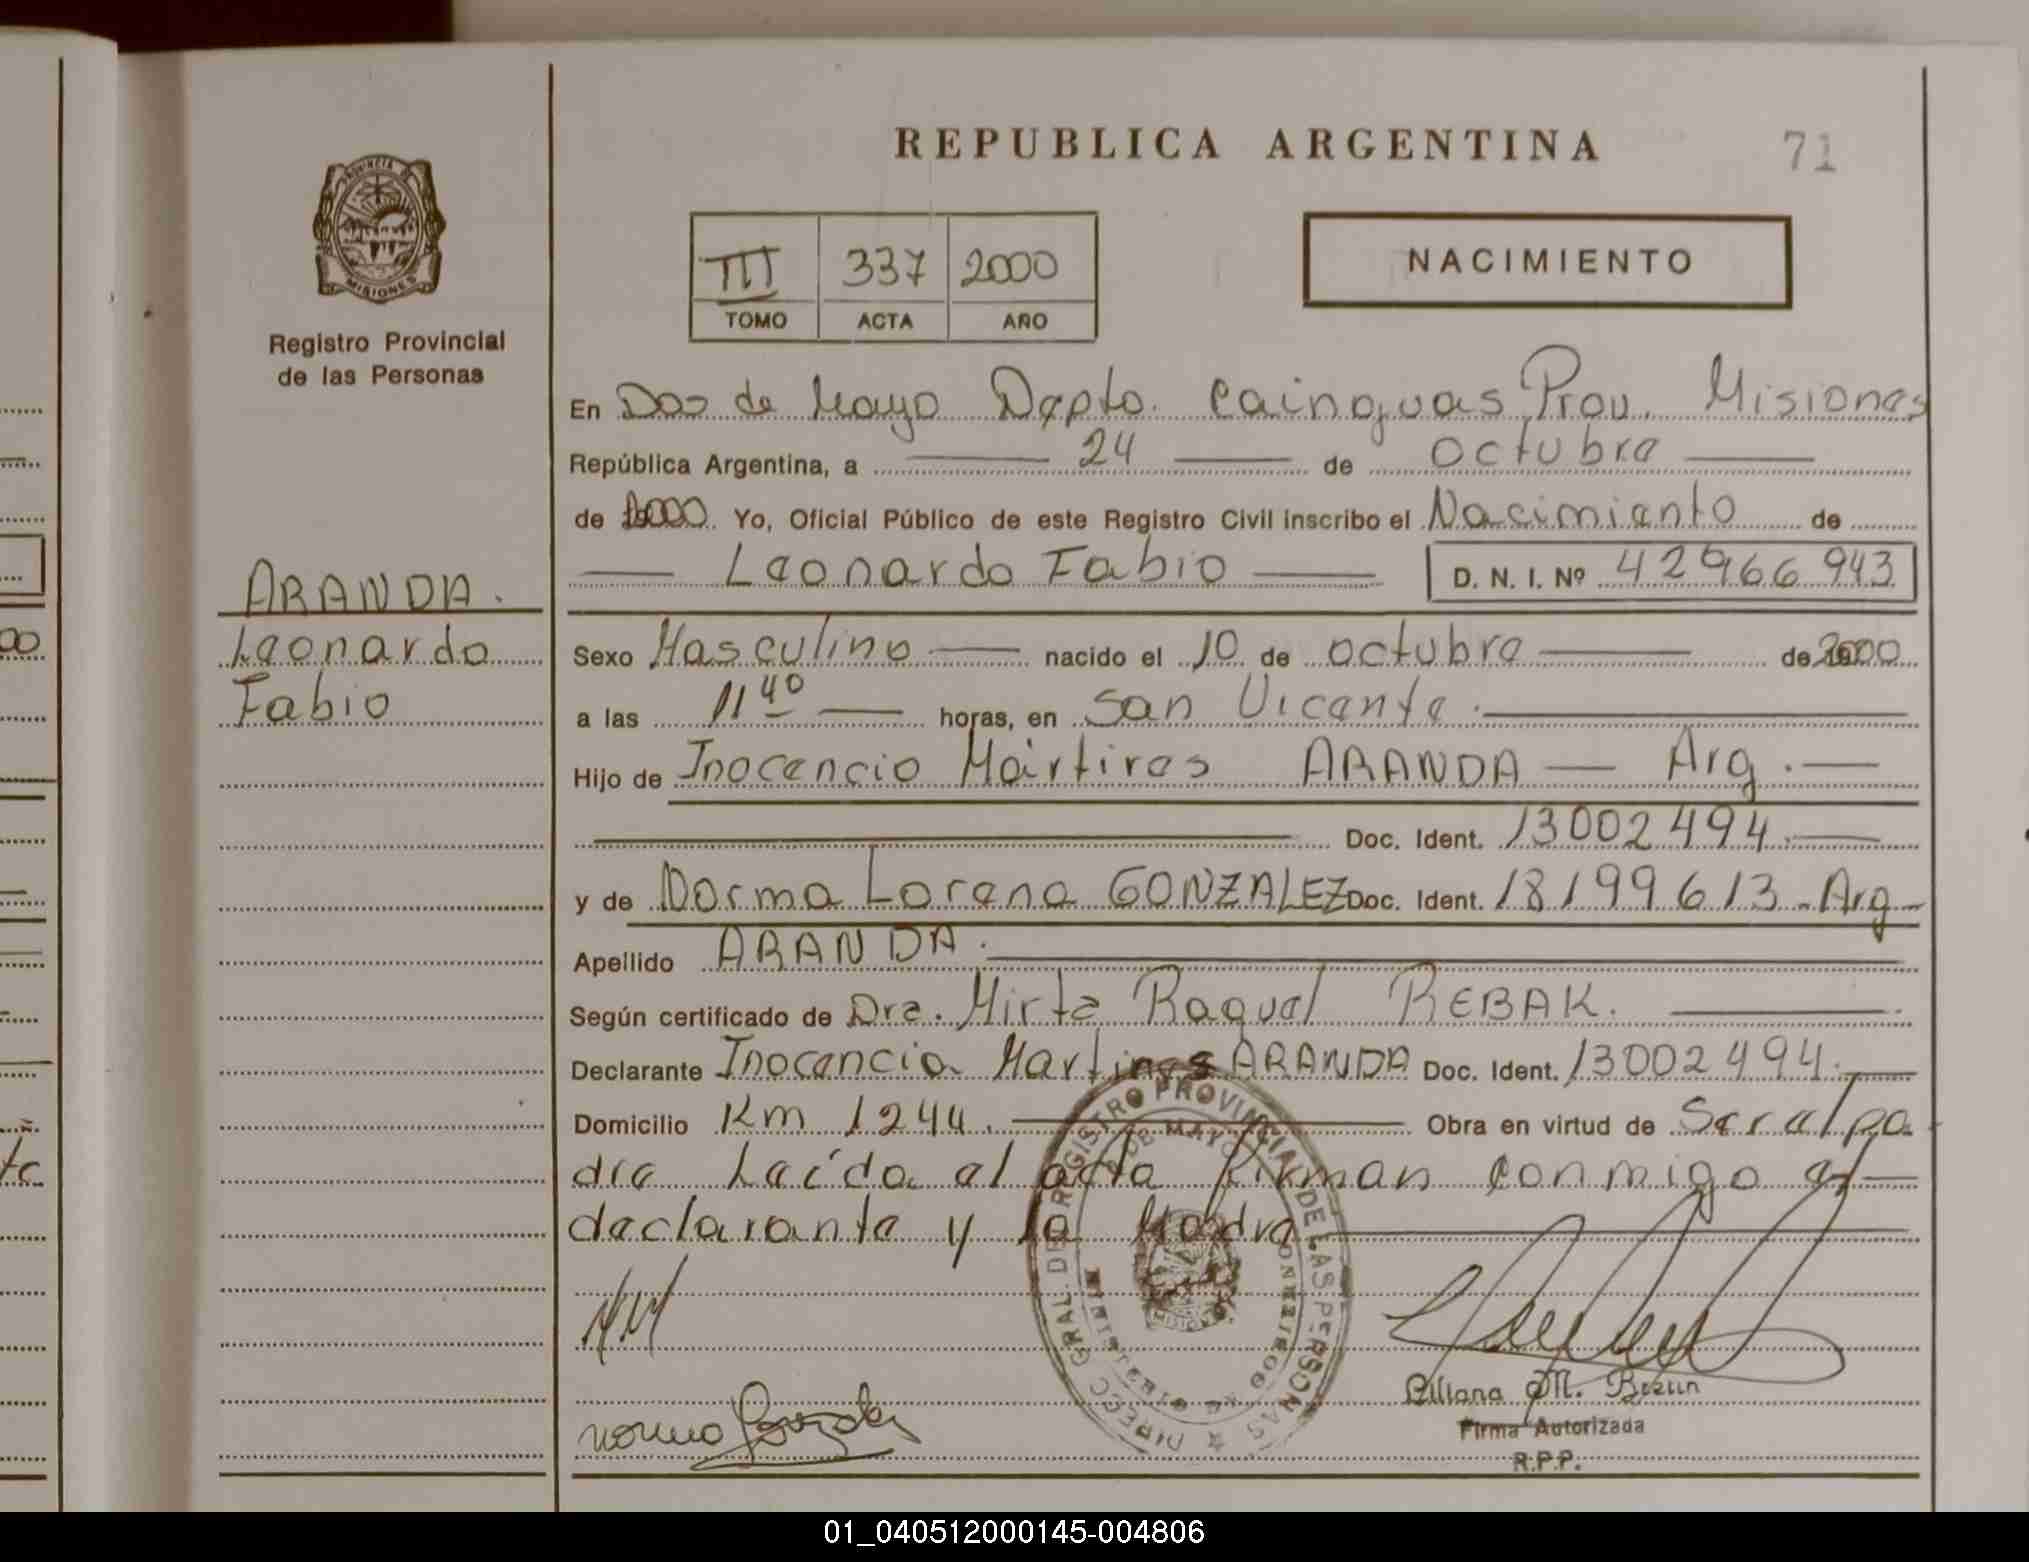 REPUBLICA ARGENTINA
71
PROVINCIA DE
MISIONES
Registro Provincial
de las Personas
III 337 2000
TOMO ACTA AÑO
NACIMIENTO
En Dos de Mayo Depto. Cainguas Prov. Misiones
República Argentina, a 24 de octubre
de 2000 Yo, Oficial Público de este Registro Civil inscribo el Nacimiento de
Leonardo Fabio D. N. I. Nº 42966943
ARANDA.
Leonardo
Fabio
Sexo Masculino nacido el 10 de octubre de 2000
a las 11 40 horas, en San Vicente.
Hijo de Inocencio Mártires ARANDA — Arg.
Doc. Ident. 13002494.
y de Norma Lorena GONZALEZ Doc. Ident. 18199613 - Arg
Apellido ARANDA.
Según certificado de Dra. Mirta Raquel REBAK.
Declarante Inocencio Martires ARANDA Doc. Ident. 13002494.
Domicilio Km 1244. Obra en virtud de Ser al pa
dre Leída el acta Firman conmigo el
declarante y la Madre
DIRECC. GRAL. DE REGISTRO PROVINCIAL DE LAS PERSONAS
DE MAYO
Norma Gonzalez
Liliana M. Brezun
Firma Autorizada
R.P.P.
00
01_040512000145-004806